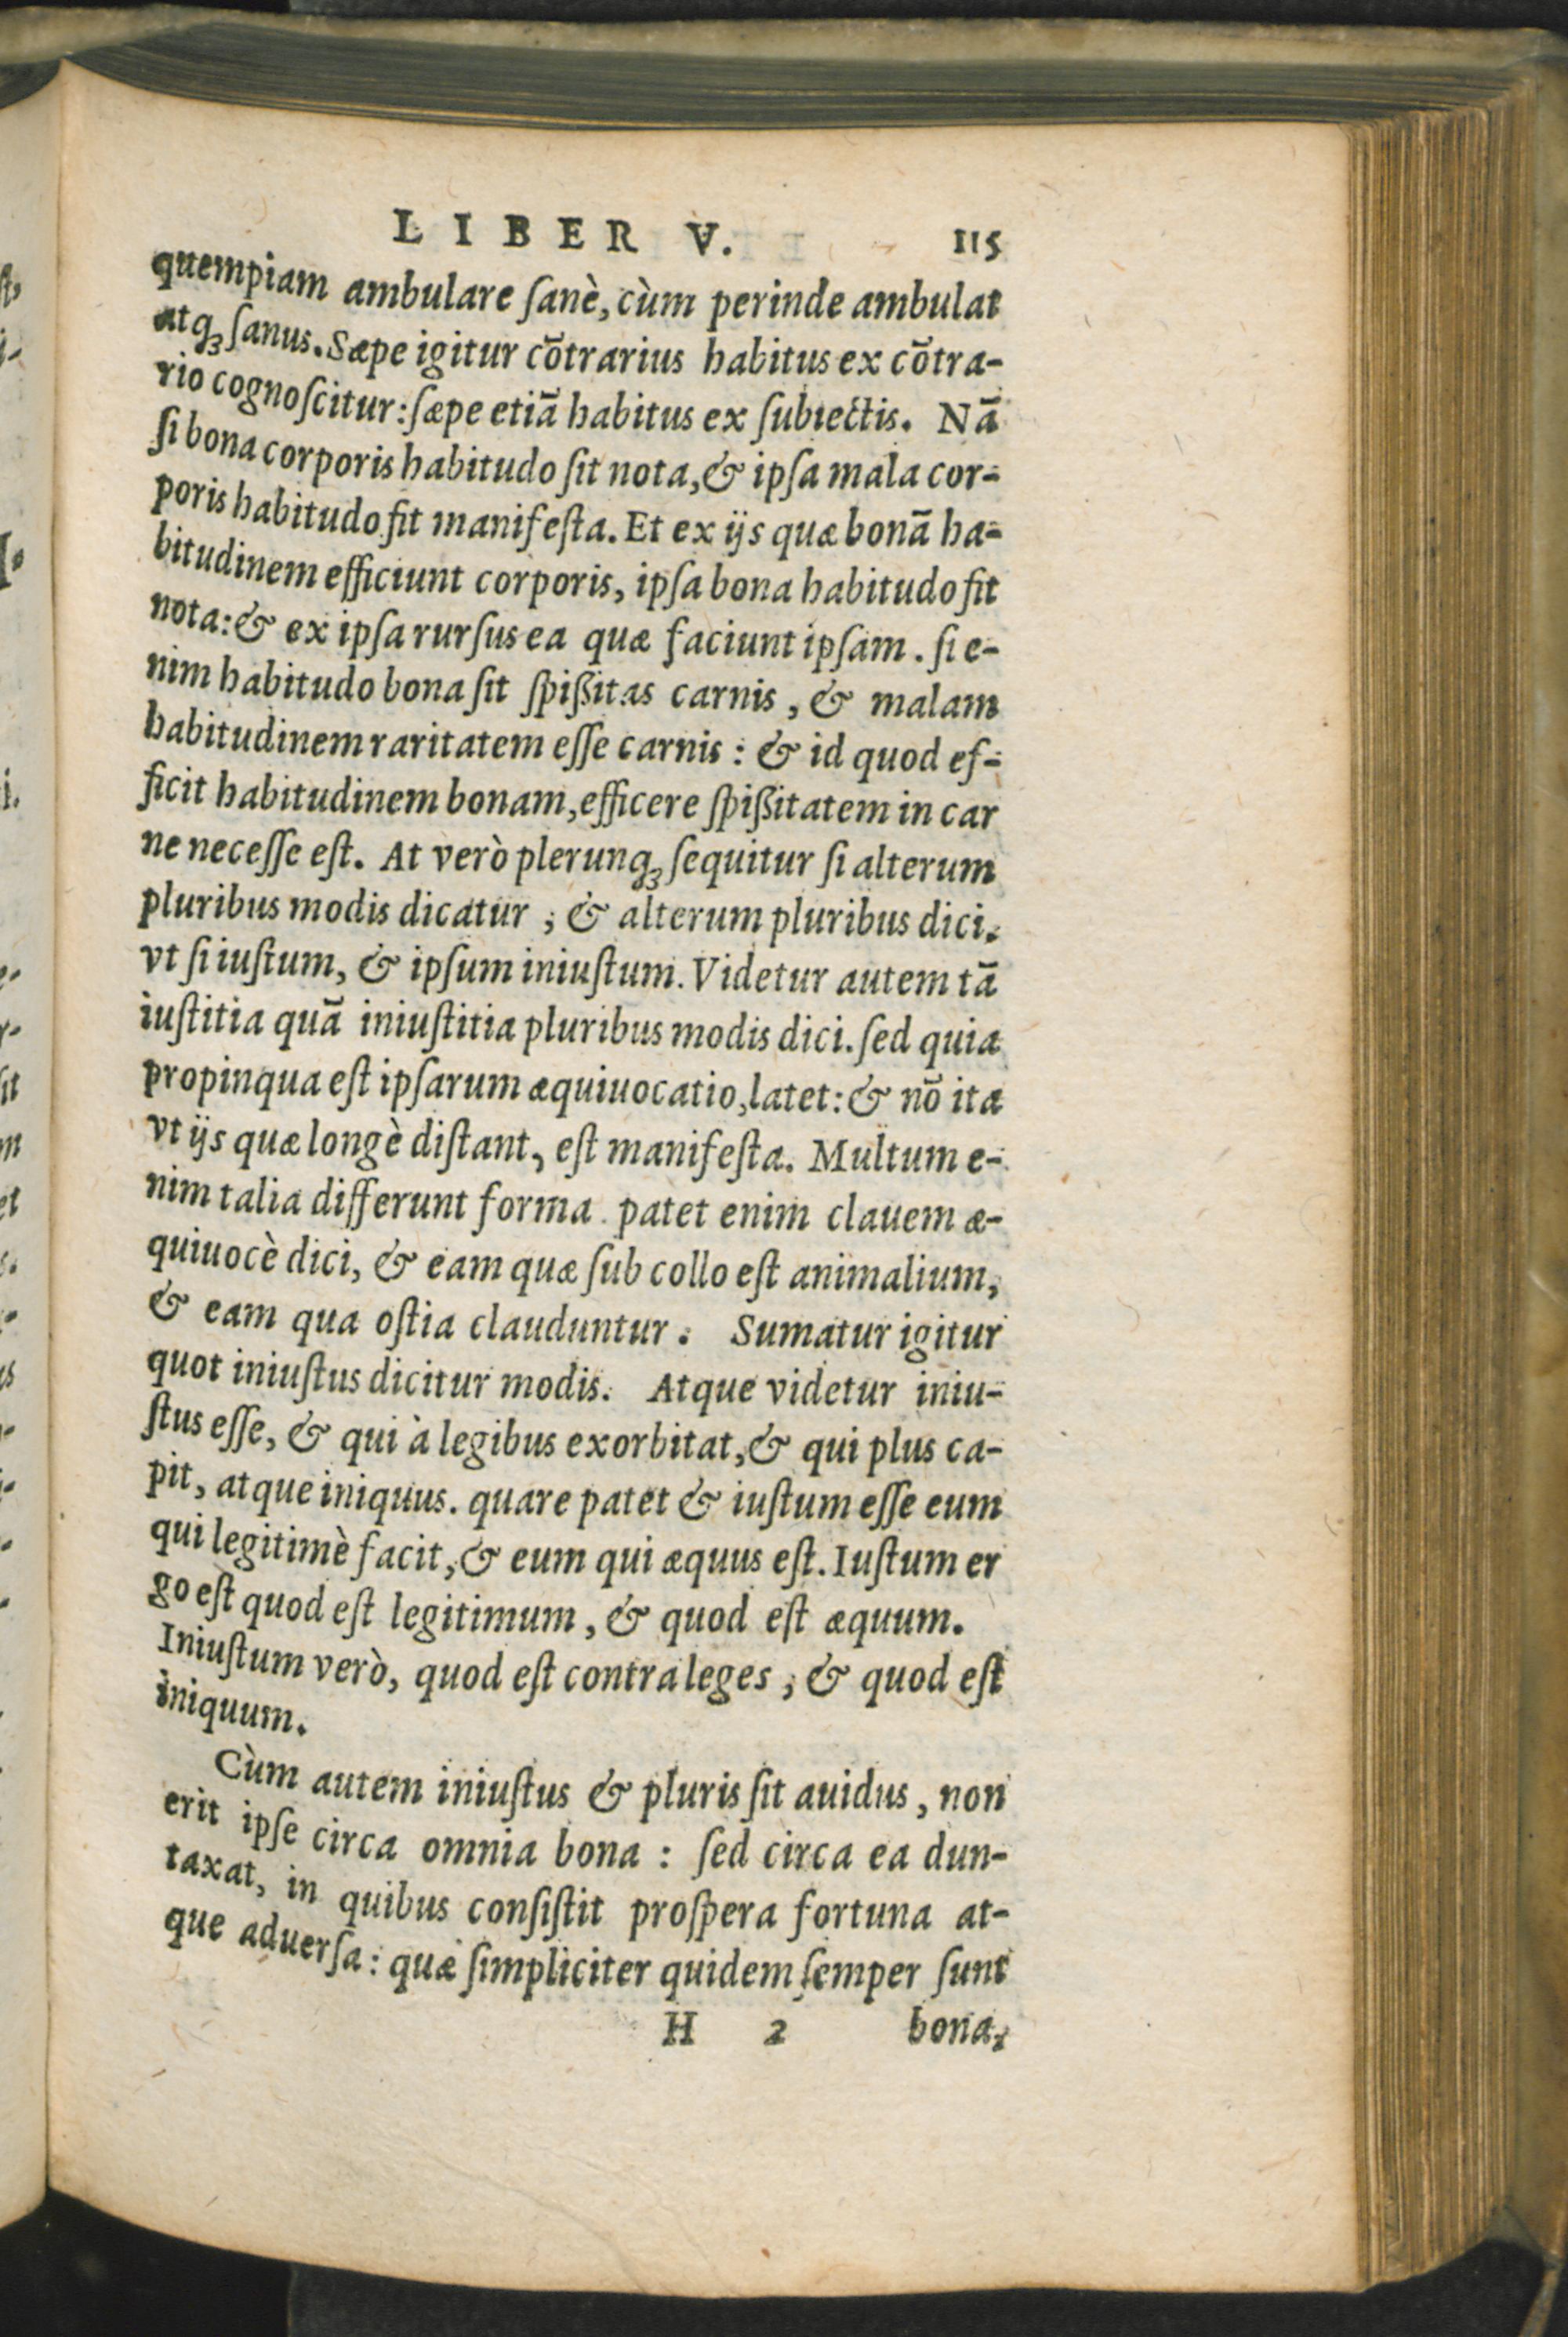 LIBER V. 115
quempiam ambulare ſanè, cùm perinde ambulat
atqꝫ ſanus. Sæpe igitur cõtrarius habitus ex cõtra-
rio cognoſcitur: ſæpe etiã habitus ex ſubiectis. Nã
ſi bona corporis habitudo ſit nota, & ipſa mala cor-
poris habitudo fit manifeſta. Et ex ijs quæ bonã ha-
bitudinem efficiunt corporis, ipſa bona habitudo fit
nota: & ex ipſa rurſus ea quæ faciunt ipſam. ſi e-
nim habitudo bona ſit ſpißitas carnis, & malam
habitudinem raritatem eſſe carnis: & id quod ef-
ficit habitudinem bonam, efficere ſpißitatem in car
ne neceſſe eſt. At verò plerunqꝫ ſequitur ſi alterum
pluribus modis dicatur, & alterum pluribus dici.
vt ſi iuſtum, & ipſum iniuſtum. Videtur autem tã
iuſtitia quã iniuſtitia pluribus modis dici. ſed quia
propinqua eſt ipſarum æquiuocatio, latet: & nõ ita
vt ijs quæ longè diſtant, eſt manifeſta. Multum e-
nim talia differunt forma. patet enim clauem æ-
quiuocè dici, & eam quæ ſub collo eſt animalium,
& eam qua oſtia clauduntur. Sumatur igitur
quot iniuſtus dicitur modis. Atque videtur iniu-
ſtus eſſe, & qui à legibus exorbitat, & qui plus ca-
pit, atque iniquus. quare patet & iuſtum eſſe eum
qui legitimè facit, & eum qui æquus eſt. Iuſtum er
go eſt quod eſt legitimum, & quod eſt æquum.
Iniuſtum verò, quod eſt contra leges, & quod eſt
iniquum.
Cùm autem iniuſtus & pluris ſit auidus, non
erit ipſe circa omnia bona: ſed circa ea dun-
taxat, in quibus conſiſtit proſpera fortuna at-
que aduerſa: quæ ſimpliciter quidem ſemper ſunt
H 2 bona,